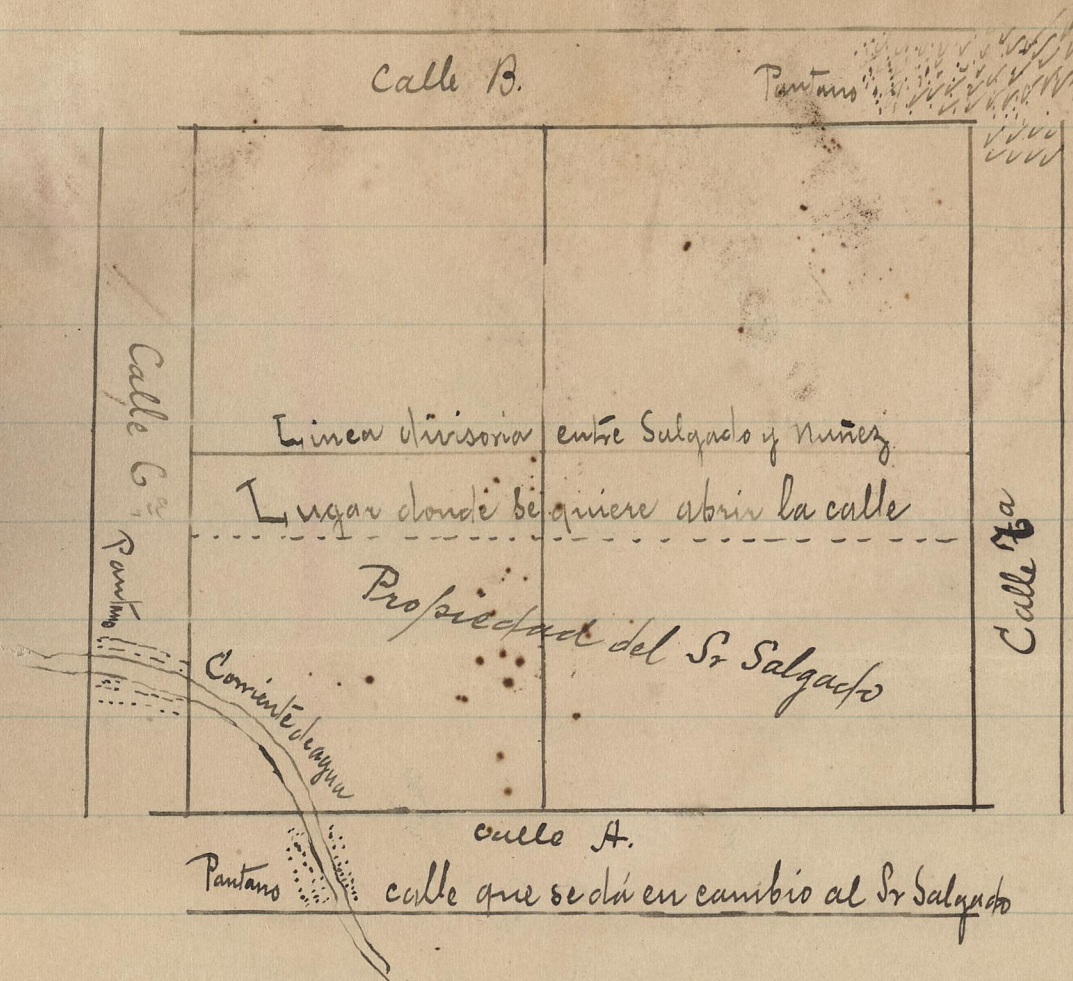 Calle B.
Pantano
Calle 6ª
Linea divisoria entre Salgado y Nuñez
Lugar donde se quiere abrir la calle
Calle 7a
Pantano
Propiedad del Sr Salgado
Corriente de agua
Calle A.
Pantano
calle que se dá en cambio al Sr Salgado